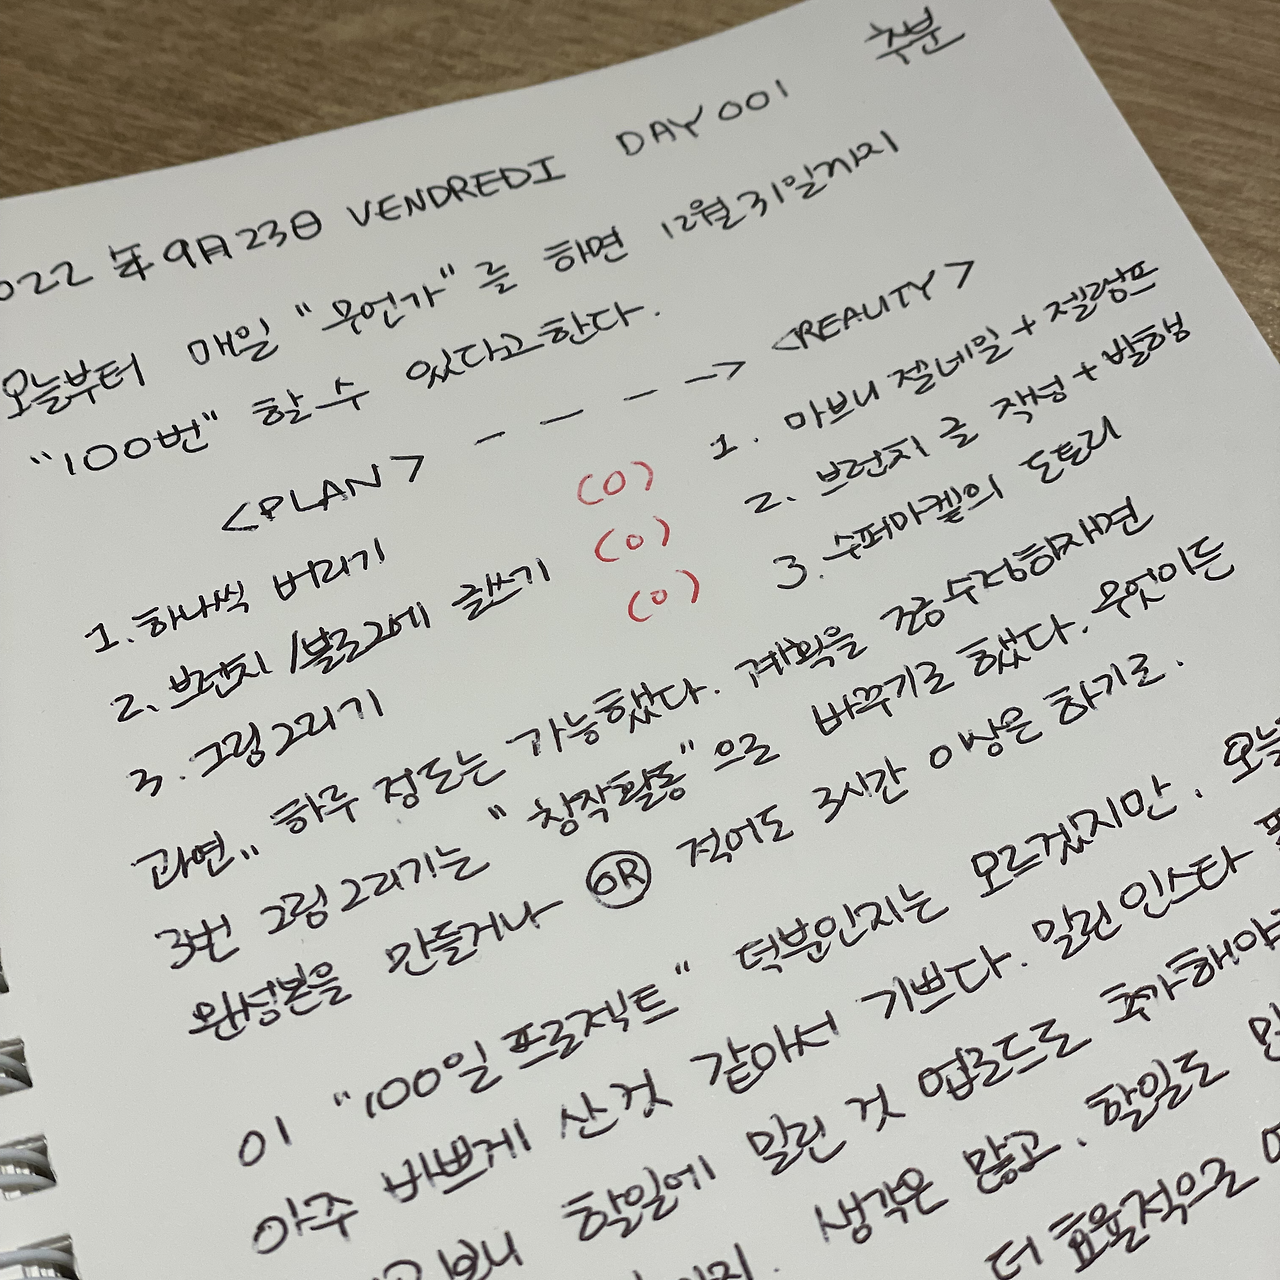 추분
2022年9月23日 VENDREDI DAY 001
오늘부터 매일 "무언가"를 하면 12월31일까지
"100번" 할 수 있다고 한다.
<PLAN> - - - -> <REALITY>
1. 하나씩 버리기 (O) 1. 마브니 젤네일 + 젤램프
2. 브런치/블로그에 글쓰기 (O) 2. 브런치 글 작성 + 발행
3. 그림그리기 (O) 3. 수퍼마켙의 도토리
과연.. 하루 정도는 가능했다. 계획을 조금 수정하자면
3번 그림그리기는 "창작활동"으로 바꾸기로 했다. 무엇이든
완성본을 만들거나 OR 적어도 3시간 이상은 하기로.
이 "100일 프로젝트" 덕분인지는 모르겠지만, 오늘
아주 바쁘게 산것 같아서 기쁘다. 밀린 인스타
할일에 밀린 것 업로드로 추가해야
생각은 많고, 할일도
더 효율적으로